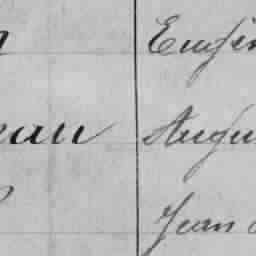 Eugèn
eau Augu
Jean